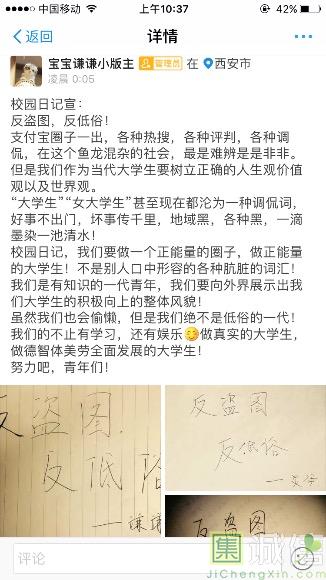 中国移动 上午10:37 42%
返回 详情
宝宝谦谦小版主 管理员 在西安市
凌晨 0:05
校园日记宣：
反盗图，反低俗！
支付宝圈子一出，各种热搜，各种评判，各种调
侃，在这个鱼龙混杂的社会，最是难辨是是非非。
但是我们作为当代大学生要树立正确的人生观价值
观以及世界观。
“大学生”“女大学生”甚至现在都沦为一种调侃词，
好事不出门，坏事传千里，地域黑，各种黑，一滴
墨染一池清水！
校园日记，我们要做一个正能量的圈子，做正能量
的大学生！不是别人口中形容的各种肮脏的词汇！
我们是有知识的一代青年，我们要向外界展示出我
们大学生的积极向上的整体风貌！
虽然我们也会偷懒，但是我们绝不是低俗的一代！
我们的不止有学习，还有娱乐😏做真实的大学生，
做德智体美劳全面发展的大学生！
努力吧，青年们！
反盗图
反低俗
反盗图
反低俗
反盗图
评论
集诚
JiChengXin.com